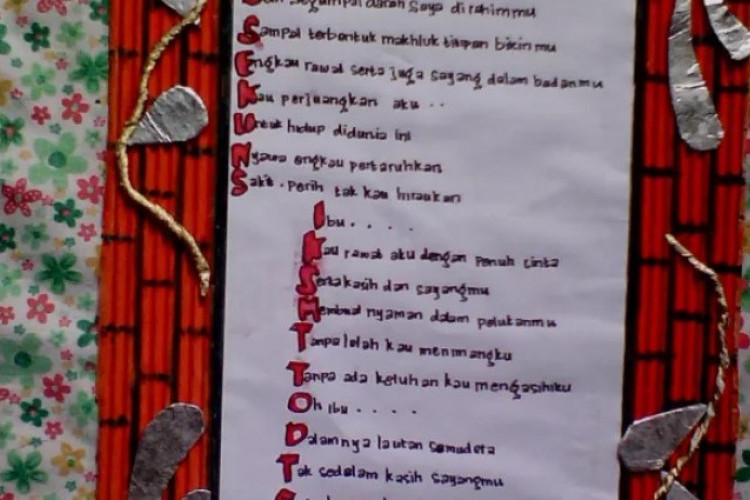 segumpal darah saya di rahimmu
Sampai terbentuk makhluk titipan bikinmu
Engkau rawat serta juga sayang dalam badanmu
Kau perjuangkan aku . .
Untuk hidup didunia ini
Nyawa engkau pertaruhkan
Sakit . perih tak kau hiraukan
Ibu . . . .
Kau rawat aku dengan penuh cinta
Serta kasih dan sayangmu
Membuat nyaman dalam pelukanmu
Tanpa lelah kau menimangku
Tanpa ada keluhan kau mengasihiku
Oh Ibu . . . .
Dalamnya lautan samudera
Tak sedalam kasih sayangmu